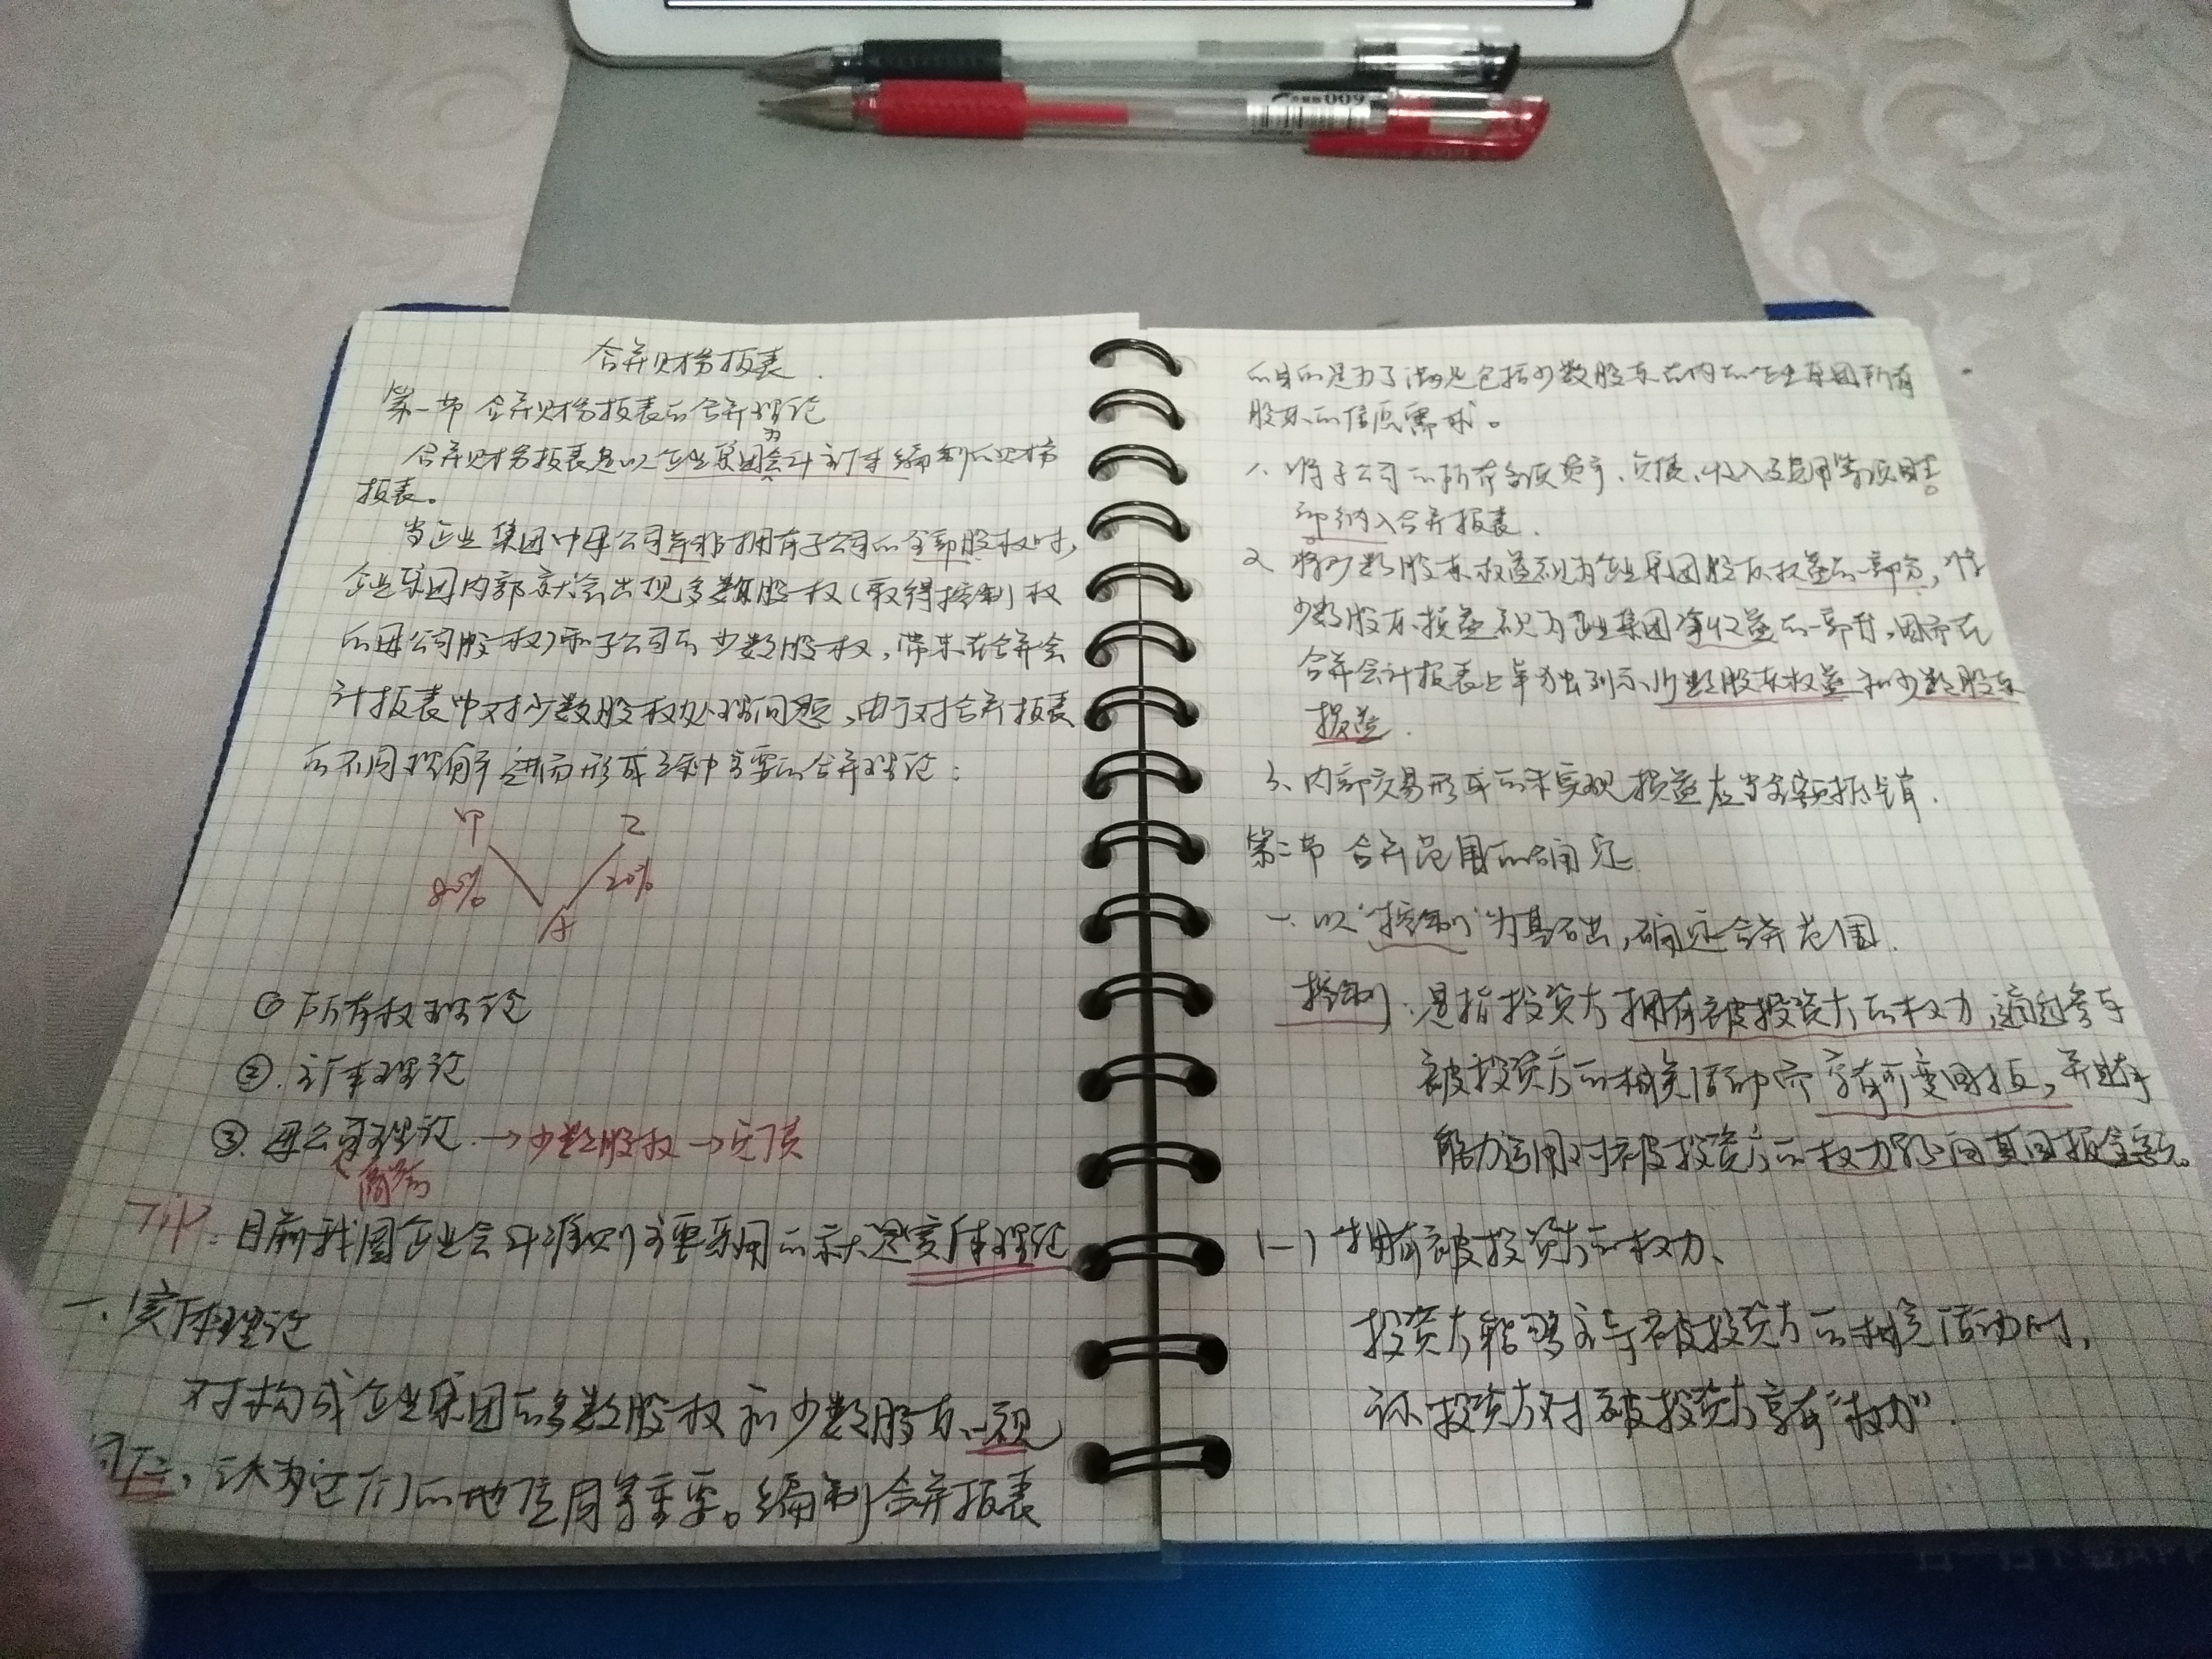 合并财务报表.
第一节 合并财务报表的合并理论
为
合并财务报表是以企业集团会计主体编制的财务
报表。
当企业集团中母公司并非拥有子公司的全部股权时,
企业集团内部就会出现多数股权(取得控制权
的母公司股权)和子公司的少数股权,带来在合并会
计报表中对少数股权处理问题,由于对合并报表
的不同理解进而形成三种主要的合并理论:
甲 乙
80% 20%
A
① 所有权理论
②. 主体理论
③. 母公司理论 →少数股权→负债
目前我国企业会计准则主要采用的就是实体理论
一、实体理论
对构成企业集团的多数股权和少数股东一视
同仁,认为它们的地位同等重要。编制合并报表
的目的是为了满足包括少数股东在内的企业集团所有
股东的信息需求。
1、将子公司的所有各项资产、负债、收入及费用等项目全
部纳入合并报表.
2、将少数股东权益视为企业集团股东权益的一部分,将
少数股东损益视为企业集团净收益的一部分,因而在
合并会计报表上单为出列示少数股东权益和少数股东
损益.
3、内部交易形成的未实现损益应当全额抵销.
第二节 合并范围的确定
一、以“控制”为基础,确定合并范围.
控制:是指投资方拥有被投资方的权力,通过参与
被投资方的相关活动而享有可变回报,并且有
能力运用对被投资方的权力影响其回报金额。
(一)拥有被投资方的权力、
投资方能够主导被投资方的相关活动时,
称投资方对被投资方享有“权力”.
009